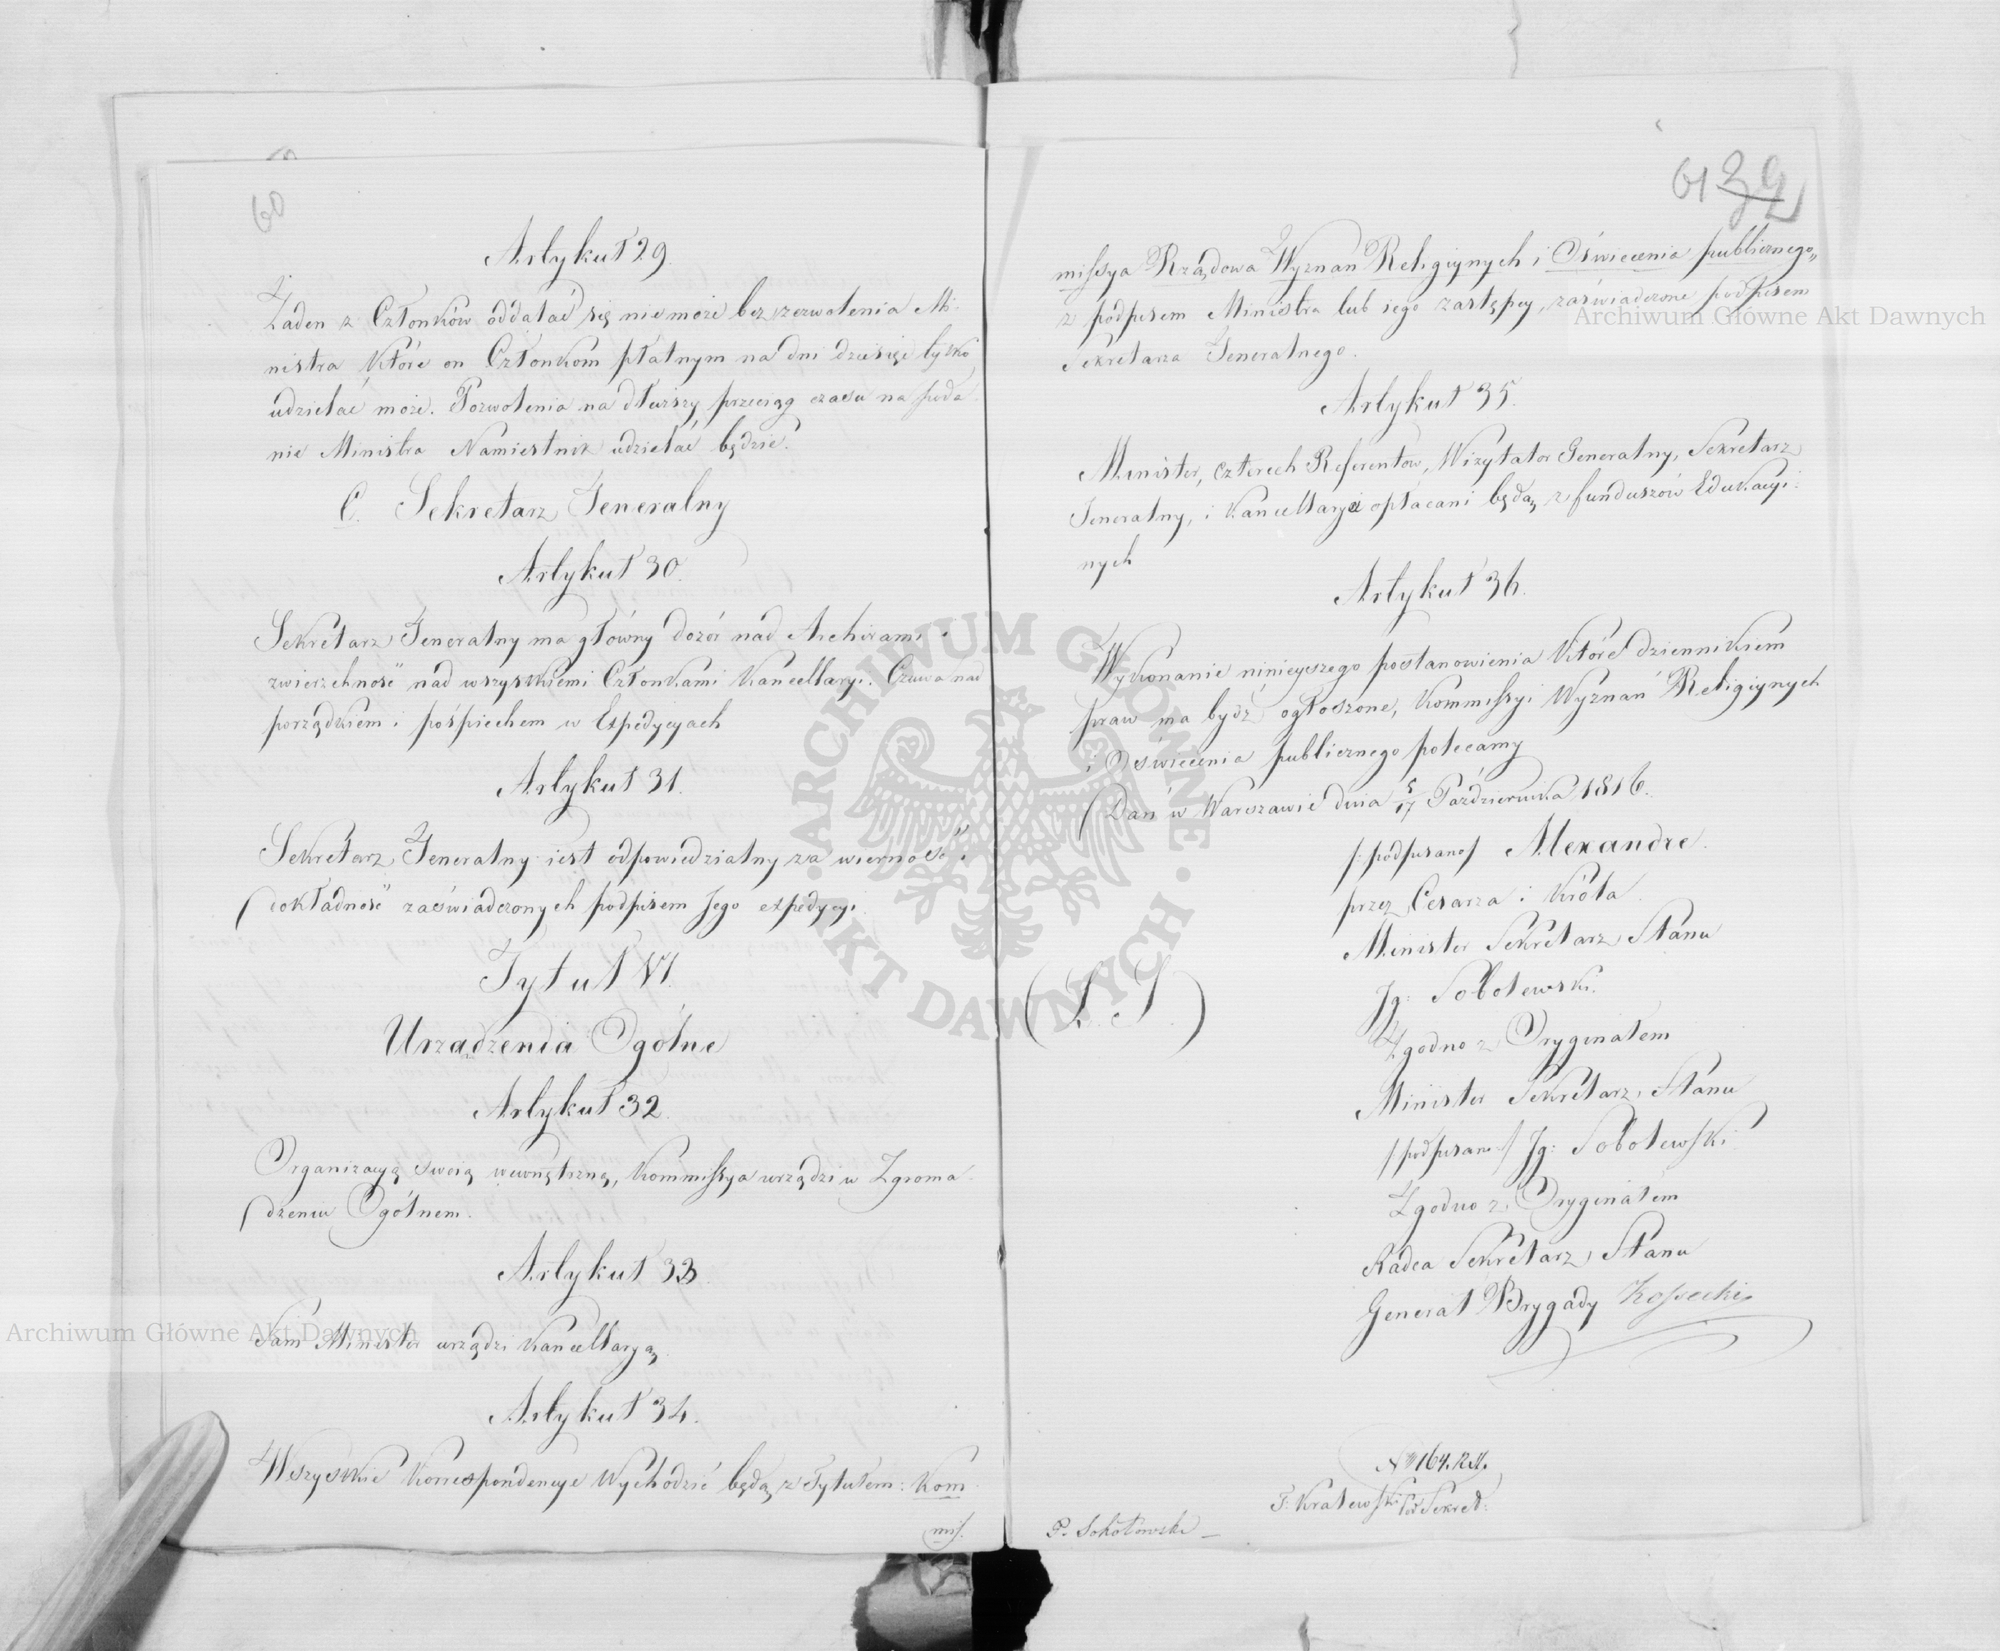 60
Artykuł 29.
Żaden z Członków oddalać się nie może bez zezwolenia Mi-
nistra które on Członkom płatnym na dni dziesięć tylko
udzielać może. Pozwolenia na dłuższy przeciąg czasu na poda-
nie Ministra Namiestnik udzielać będzie.
C. Sekretarz Jeneralny
Artykuł 30.
Sekretarz Jeneralny ma główny dozór nad Archivami i
zwierzchność nad wszystkiemi Członkami Kancellaryi. Czuwa nad
porządkiem i pośpiechem w Expedycyach
Artykuł 31.
Sekretarz Jeneralny iest odpowiedzialny za wierność i
dokładność zaświadczonych podpisem Jego expedycyi.
Tytuł VI.
Urządzenia Ogólne
Artykuł 32.
Organizacyą swoią wewnętrzną, Kommissya urządzi w Zgroma-
dzeniu Ogólnem.
Artykuł 33.
Sam Minister urządzi Kancellaryą.
Artykuł 34.
Wszystkie Korrespondencye wychodzić będą z Tytułem: Kom-
mis.
61 32
missya Rządowa Wyznań Religiynych i Oświecenia publicznego„
z podpisem Ministra lub iego zastępcy, zaświadczone podpisem
Sekretarza Jeneralnego.
Artykuł 35.
Minister, czterech Referentów, Wizytator Generalny, Sekretarz
Jeneralny, i Kancellarya opłacani będą z funduszów Edukacyi-
nych
Artykuł 36.
Wykonanie ninieyszego postanowienia które dziennikiem
praw ma bydź ogłoszone, Kommissyi Wyznań Religiynych
i Oświecenia publicznego polecamy
Dan w Warszawie dnia 5/17 Października 1816.
/:podpisano/ Alexandre.
przez Cesarza i Króla.
Minister Sekretarz Stanu
Jg: Sobolewski.
(L. S.)
Zgodno z Oryginałem
Minister Sekretarz Stanu
/podpisano/ Jg: Sobolewski
Zgodno z Oryginałem
Radca Sekretarz Stanu
Generał Brygady Kossecki
No 164.
F. Kralewski Sekret:
P. Sokołowski
Archiwum Główne Akt Dawnych
Archiwum Główne Akt Dawnych
ARCHIWUM GŁÓWNE · AKT DAWNYCH ·